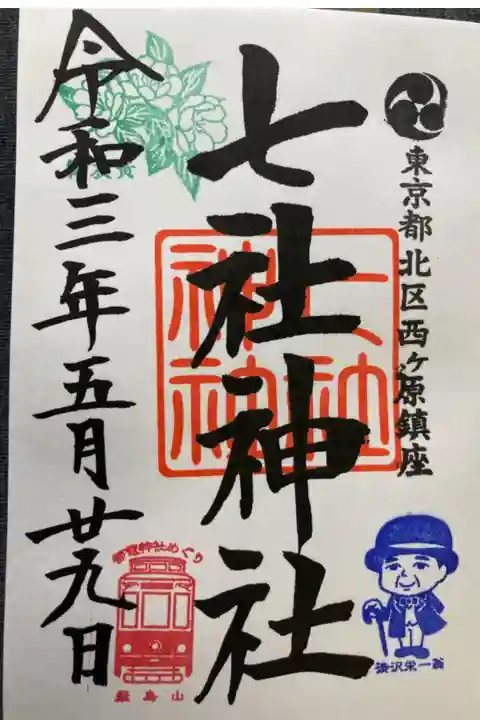 東京都北区西ヶ原鎮座
七社神社
七社
神社
令和三年五月廿九日
渋沢栄一翁
飛鳥山